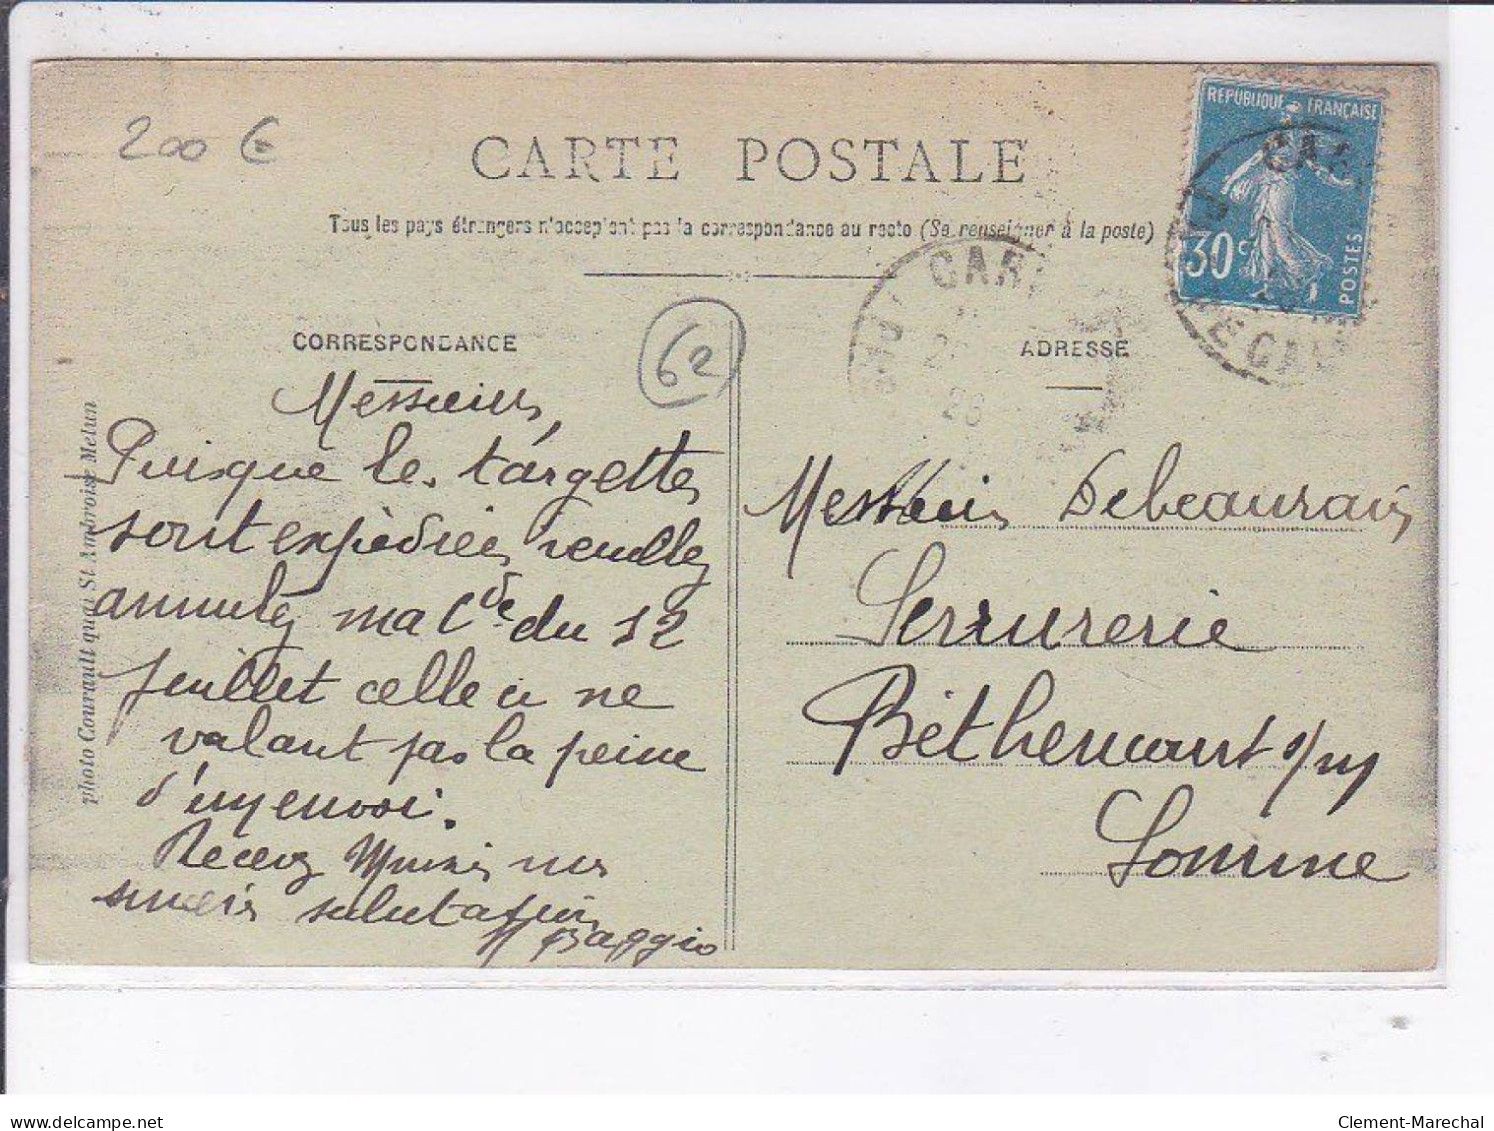 200 €
CARTE POSTALE
Tous les pays étrangers n'acceptent pas la correspondance au recto (Se renseigner à la poste)
REPUBLIQUE FRANÇAISE
30c
POSTES
62
CORRESPONDANCE
Messieurs,
Puisque les targettes
sont expédiées veuillez
annulez ma Cde du 12
juillet celle ci ne
valant pas la peine
d'un envoi.
Recevez mes
sincères salutations
Baggio
photo Courault quai St Ambroise Melun
ADRESSE
Messieurs Debeaurais
Serrurerie
Béthencourt s/m
Somme
delcampe.net
Clement-Marechal